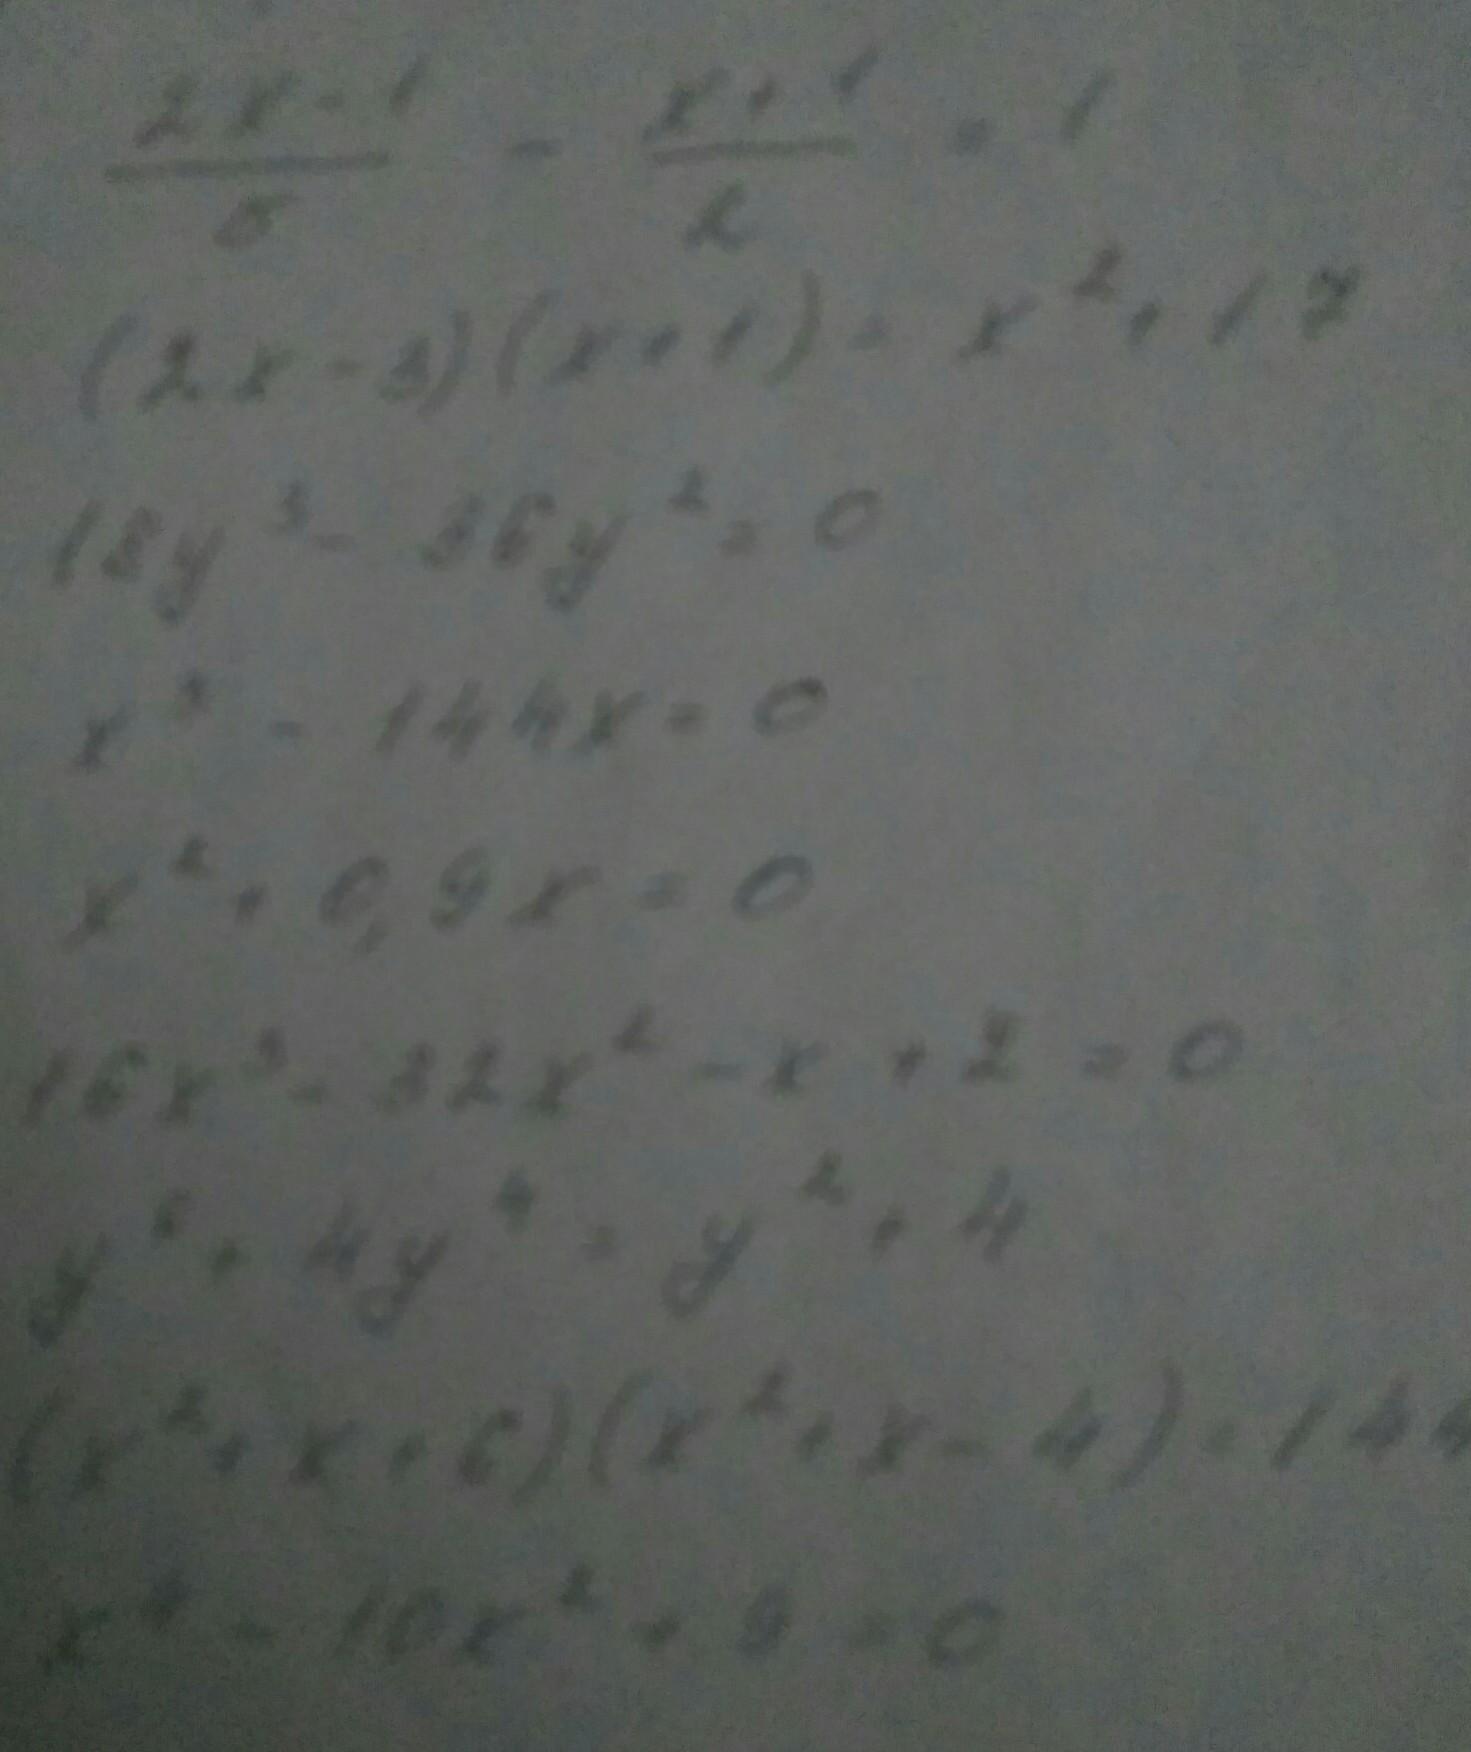 (2x-1)/5 - (x+1)/2 = 1
(2x-3)(x+1) = x²+17
18y³ - 36y² = 0
x³ - 144x = 0
x² + 0,9x = 0
16x³ - 32x² - x + 2 = 0
y⁵ + 4y⁴ = y² + 4
(x²+x+6)(x²+x-4) = 144
x⁴ - 10x² + 9 = 0